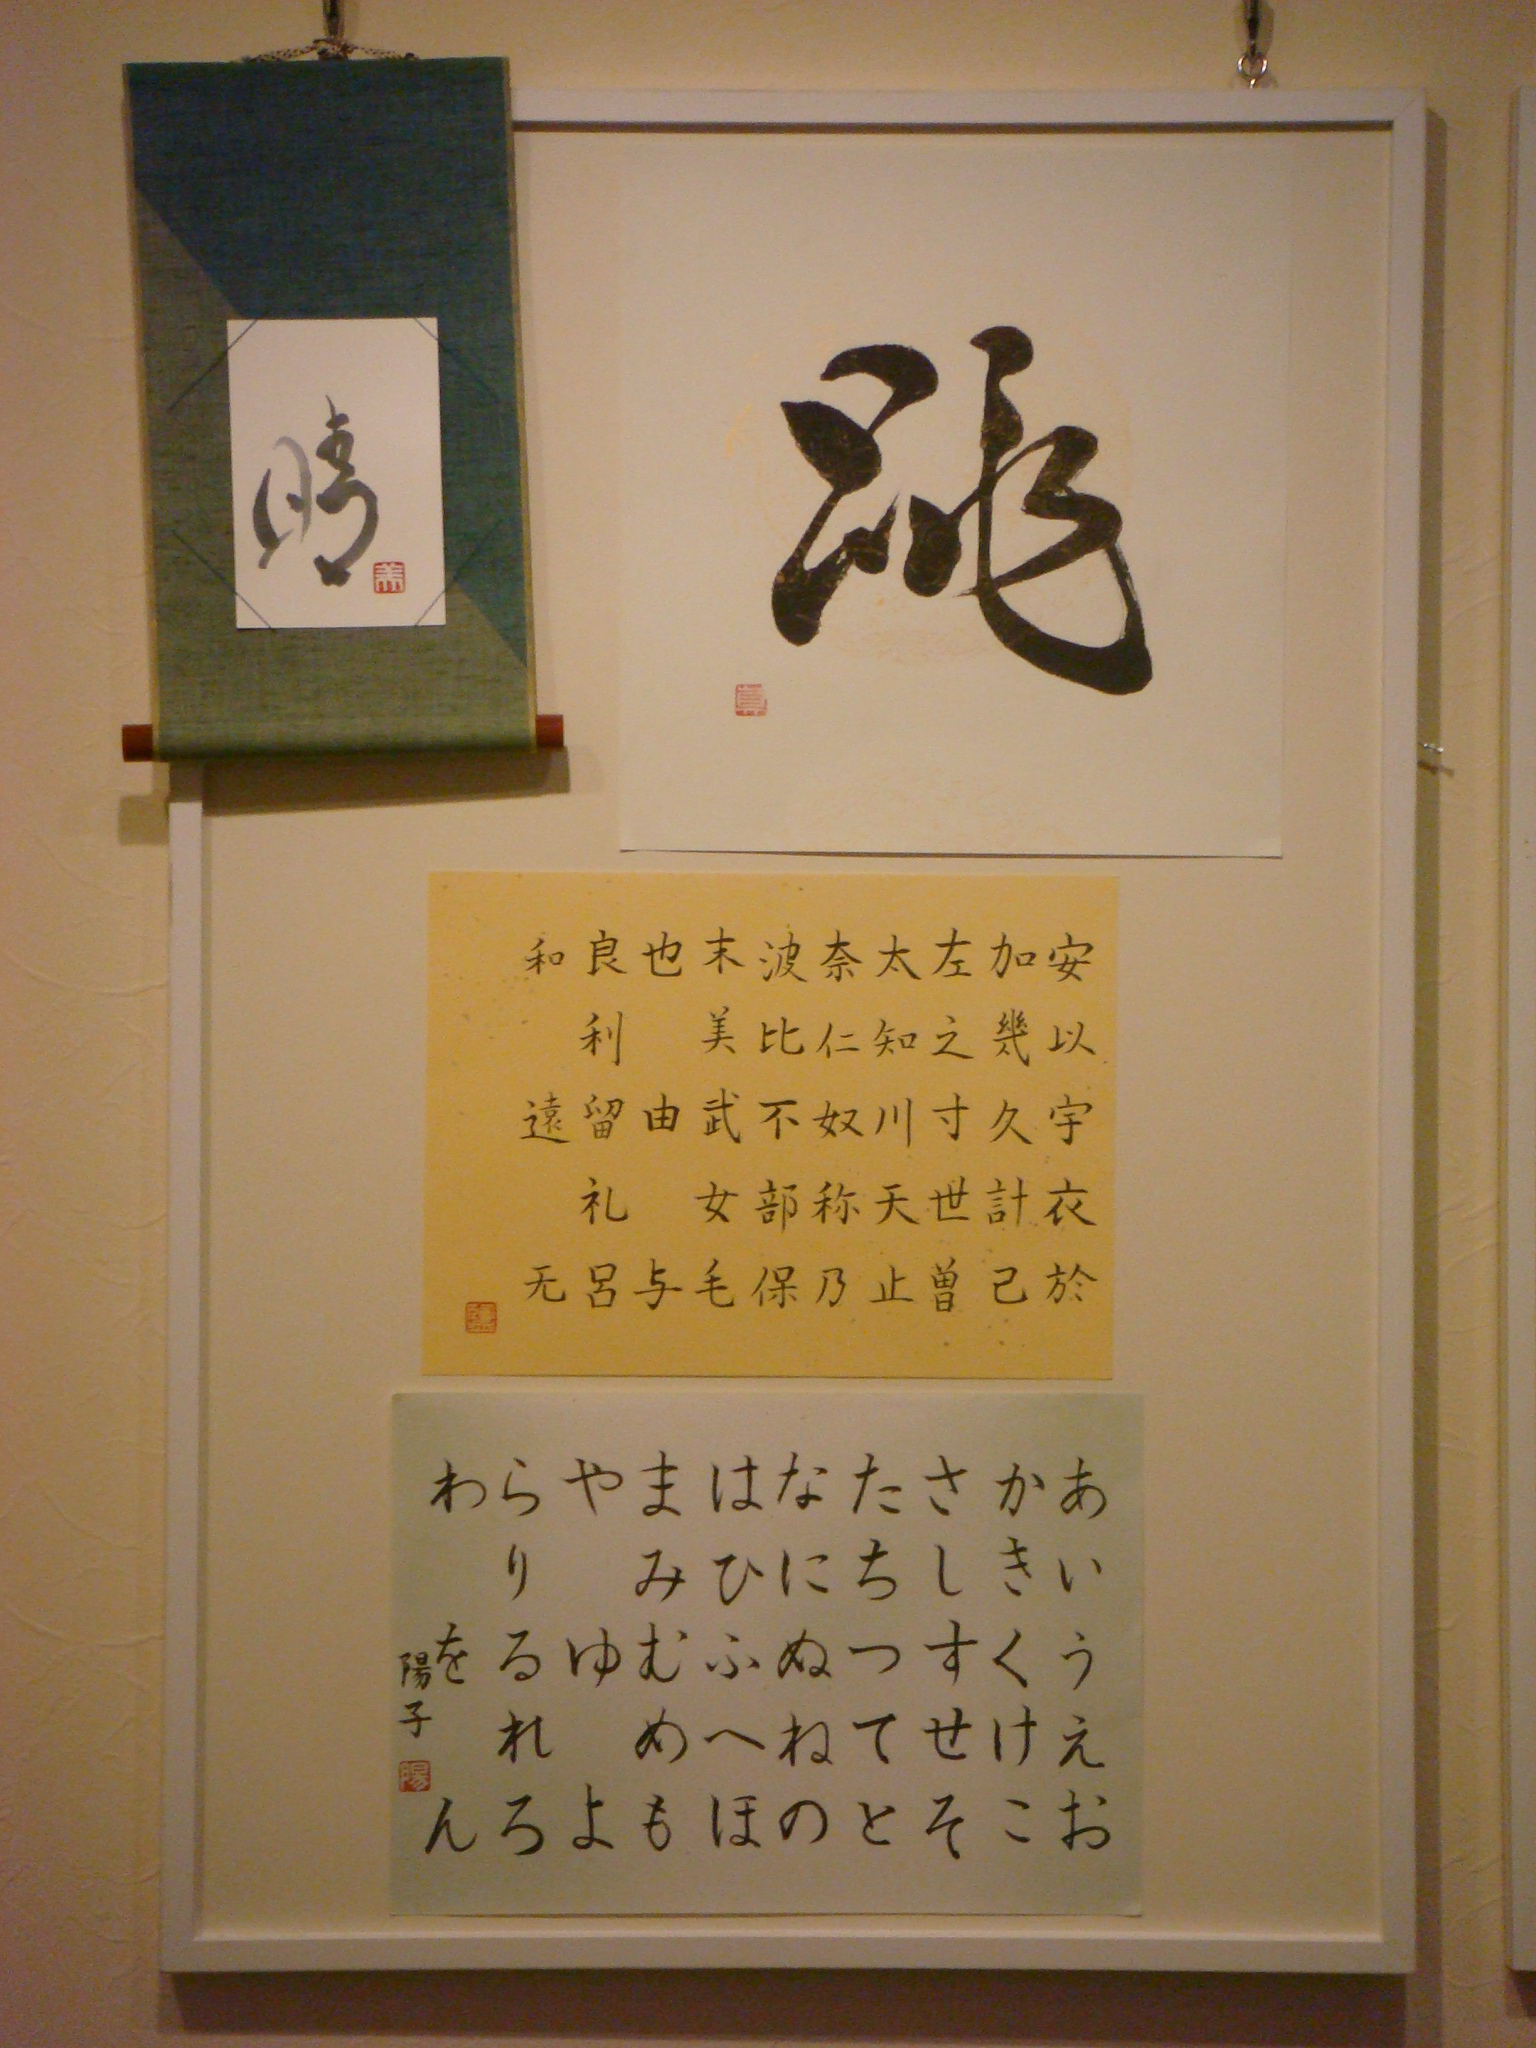 晴
跳
安以宇衣於
加幾久計己
左之寸世曽
太知川天止
奈仁奴祢乃
波比不部保
末美武女毛
也由与
良利留礼呂
和遠无
あいうえお
かきくけこ
さしすせそ
たちつてと
なにぬねの
はひふへほ
まみむめも
やゆよ
らりるれろ
わをん
陽子
陽